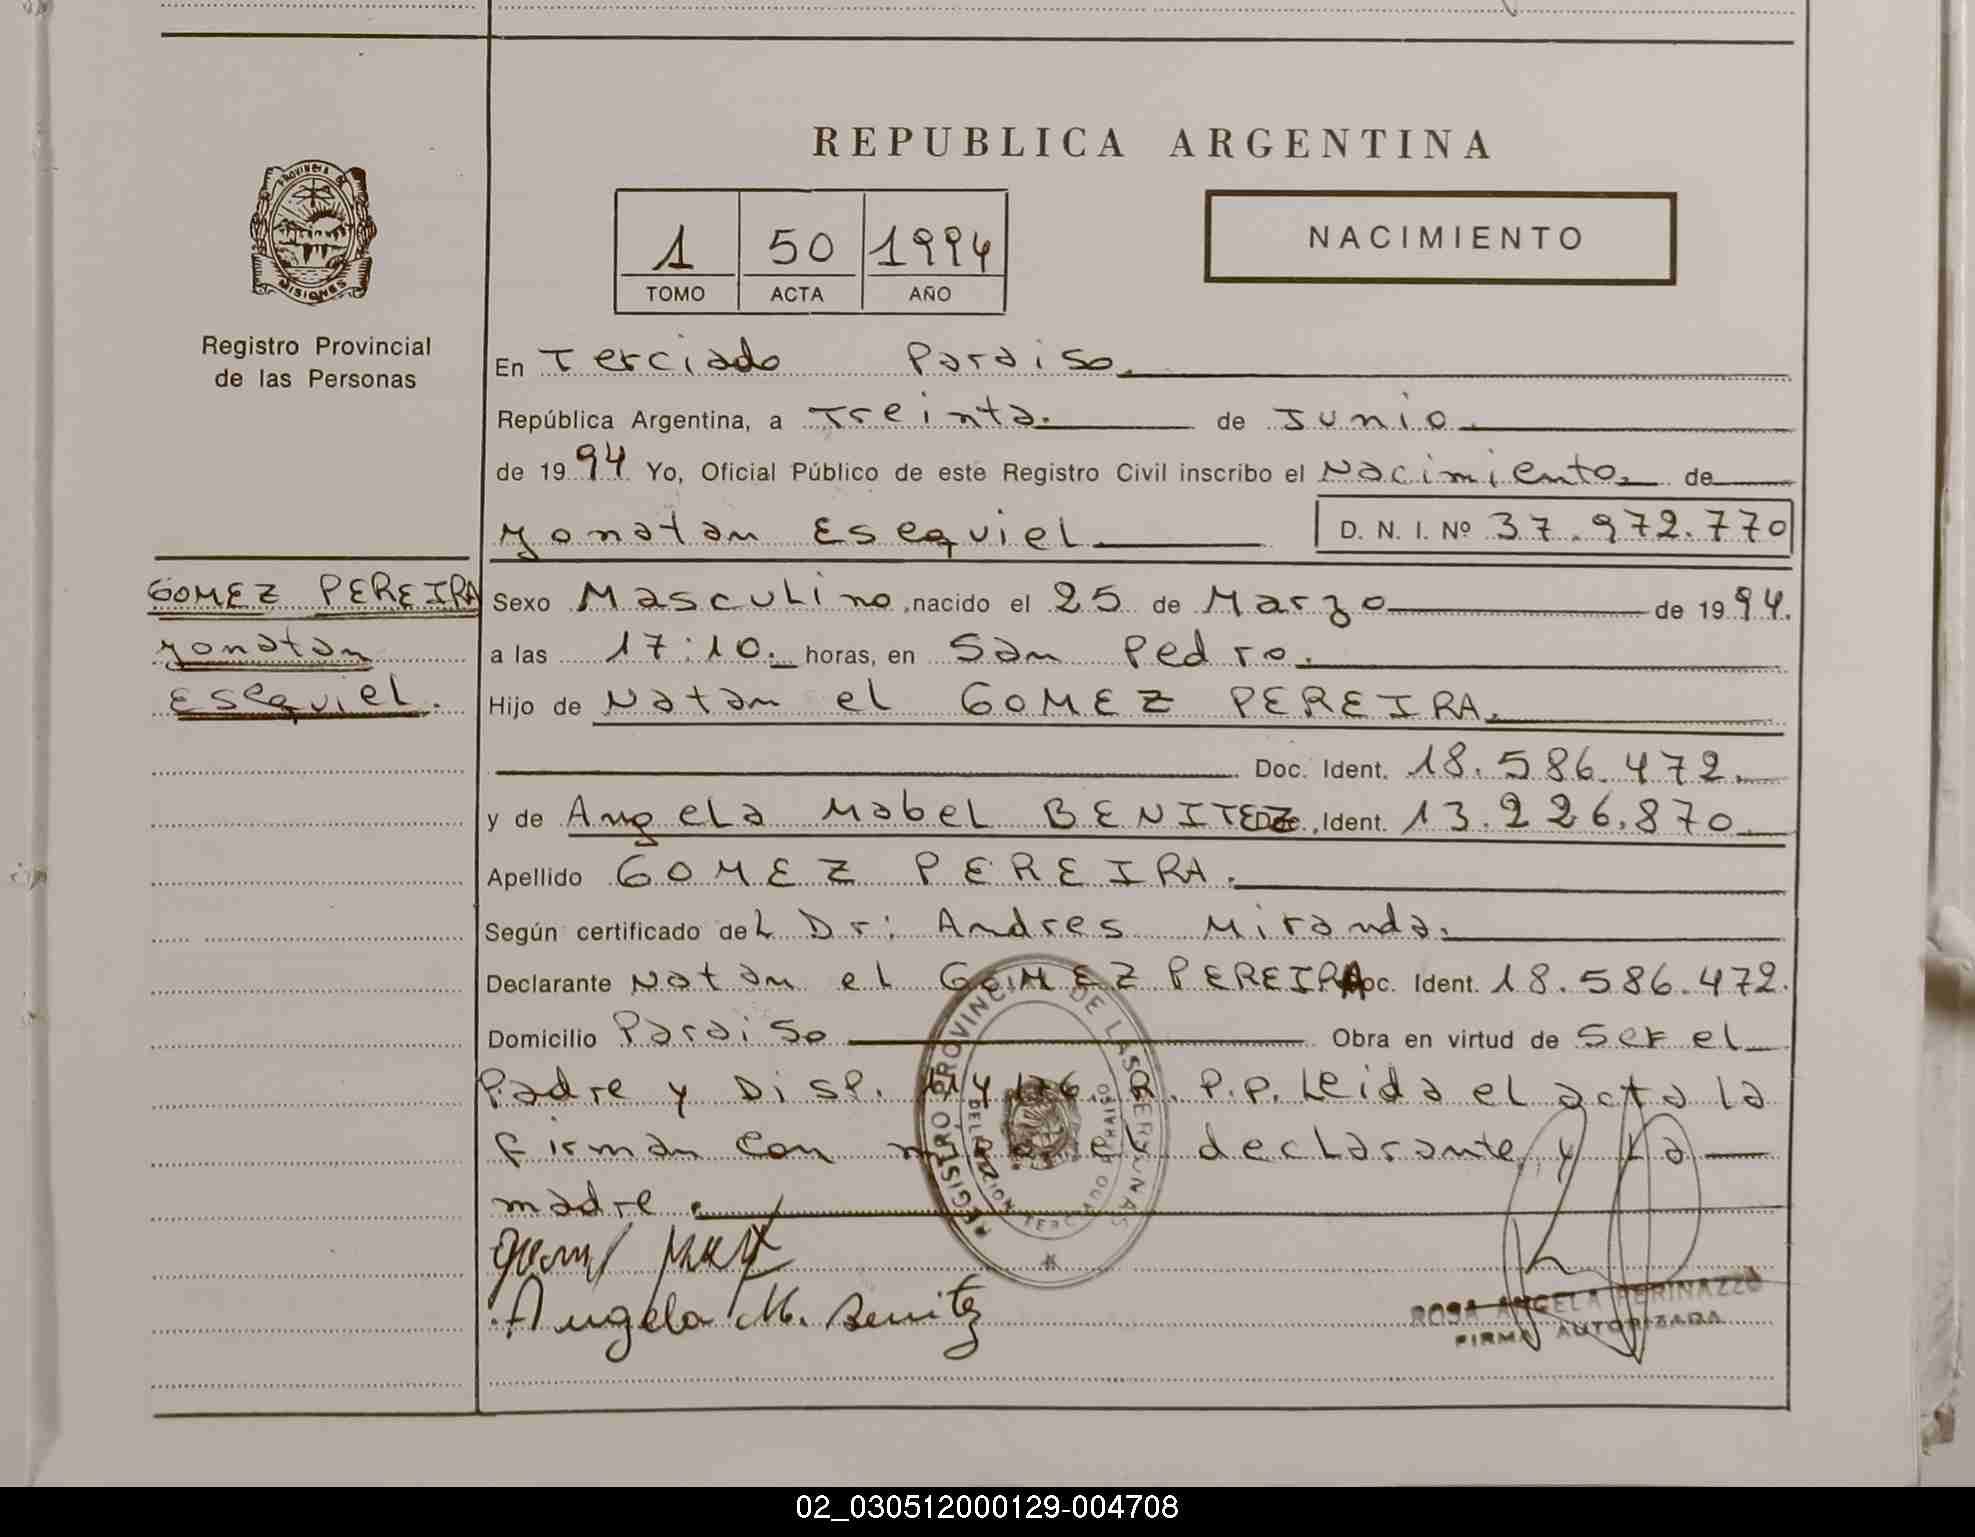 REPUBLICA ARGENTINA
PROVINCIA DE
MISIONES
1 50 1994
TOMO ACTA AÑO
NACIMIENTO
Registro Provincial
de las Personas
En Terciado Paraiso.
República Argentina, a Treinta. de Junio
de 1994 Yo, Oficial Público de este Registro Civil inscribo el Nacimiento de
Yonatan Esequiel D. N. I. Nº 37.972.770
GOMEZ PEREIRA
Yonatan
Esequiel.
Sexo Masculino, nacido el 25 de Marzo de 1994.
a las 17:10. horas, en San Pedro.
Hijo de Natan el GOMEZ PEREIRA.
Doc. Ident. 18.586.472.
y de Angela Mabel BENITEZ Doc. Ident. 13.226.870
Apellido GOMEZ PEREIRA.
Según certificado del Dr: Andres Miranda.
Declarante Natan el GOMEZ PEREIRA Doc. Ident. 18.586.472.
Domicilio Paraiso Obra en virtud de ser el
Padre y Disp. R.P.P. Leida el acta la
firman con el declarante y la
madre.
REGISTRO PROVINCIAL DE LAS PERSONAS
Angela M. Benitez
ROSA ANGELA PERINAZZO
FIRMA AUTORIZADA
02_030512000129-004708